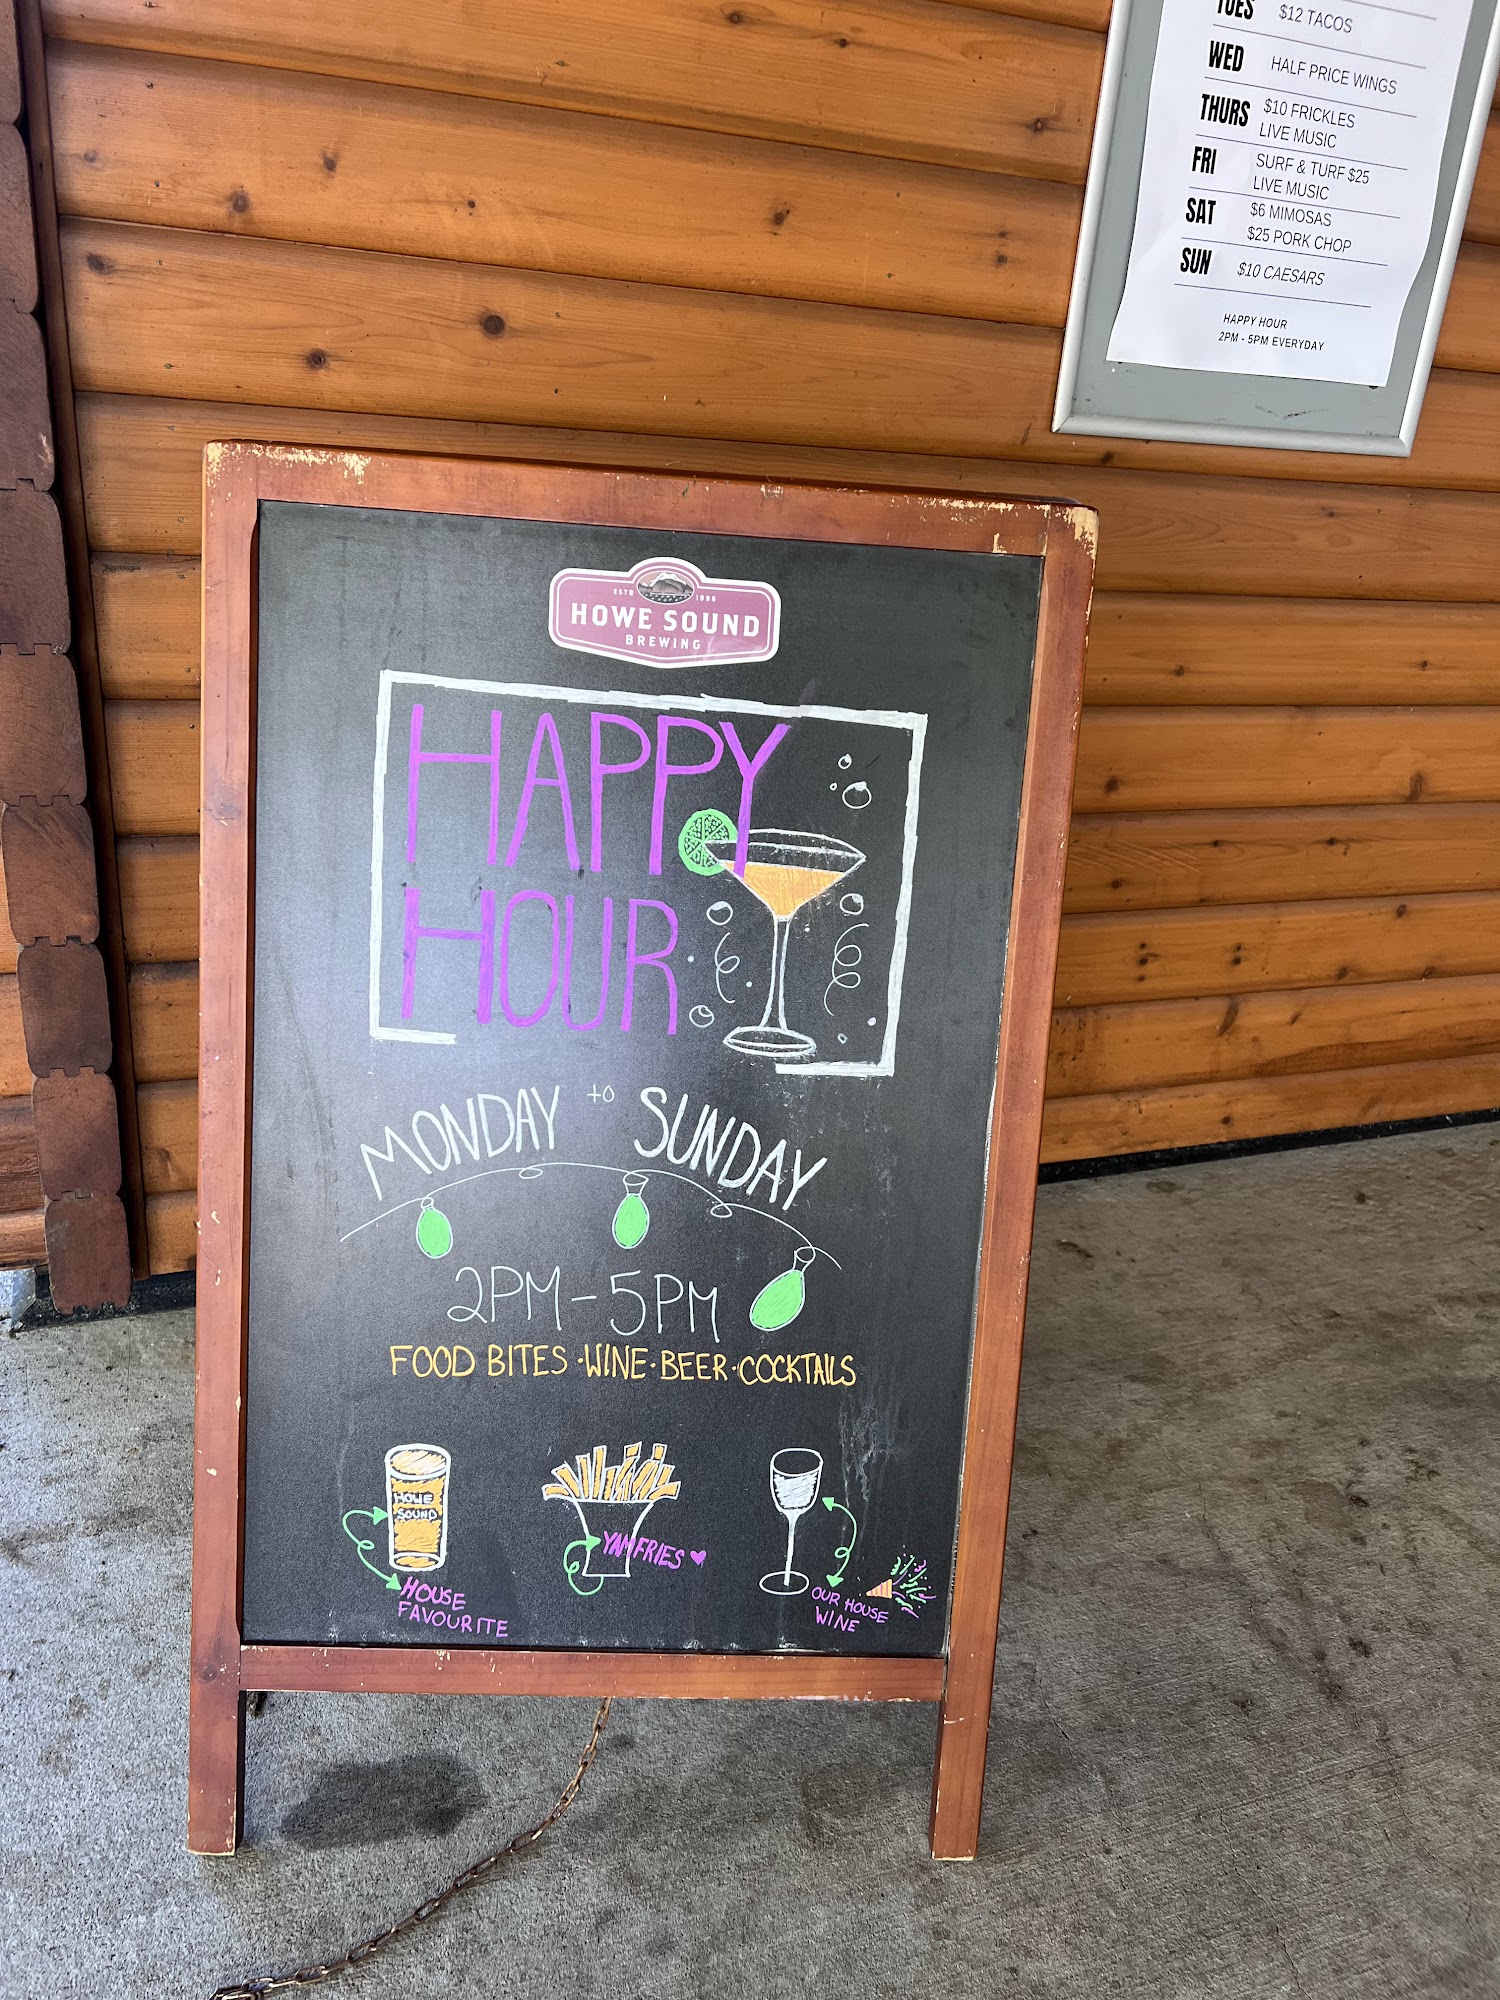 TUES $12 TACOS
WED HALF PRICE WINGS
THURS $10 FRICKLES
LIVE MUSIC
FRI SURF & TURF $25
LIVE MUSIC
SAT $6 MIMOSAS
$25 PORK CHOP
SUN $10 CAESARS
HAPPY HOUR
2PM - 5PM EVERYDAY
ESTD 1996
HOWE SOUND
BREWING
HAPPY
HOUR
MONDAY to SUNDAY
2PM-5PM
FOOD BITES · WINE · BEER · COCKTAILS
HOWE
SOUND
HOUSE
FAVOURITE
YAM FRIES
OUR HOUSE
WINE